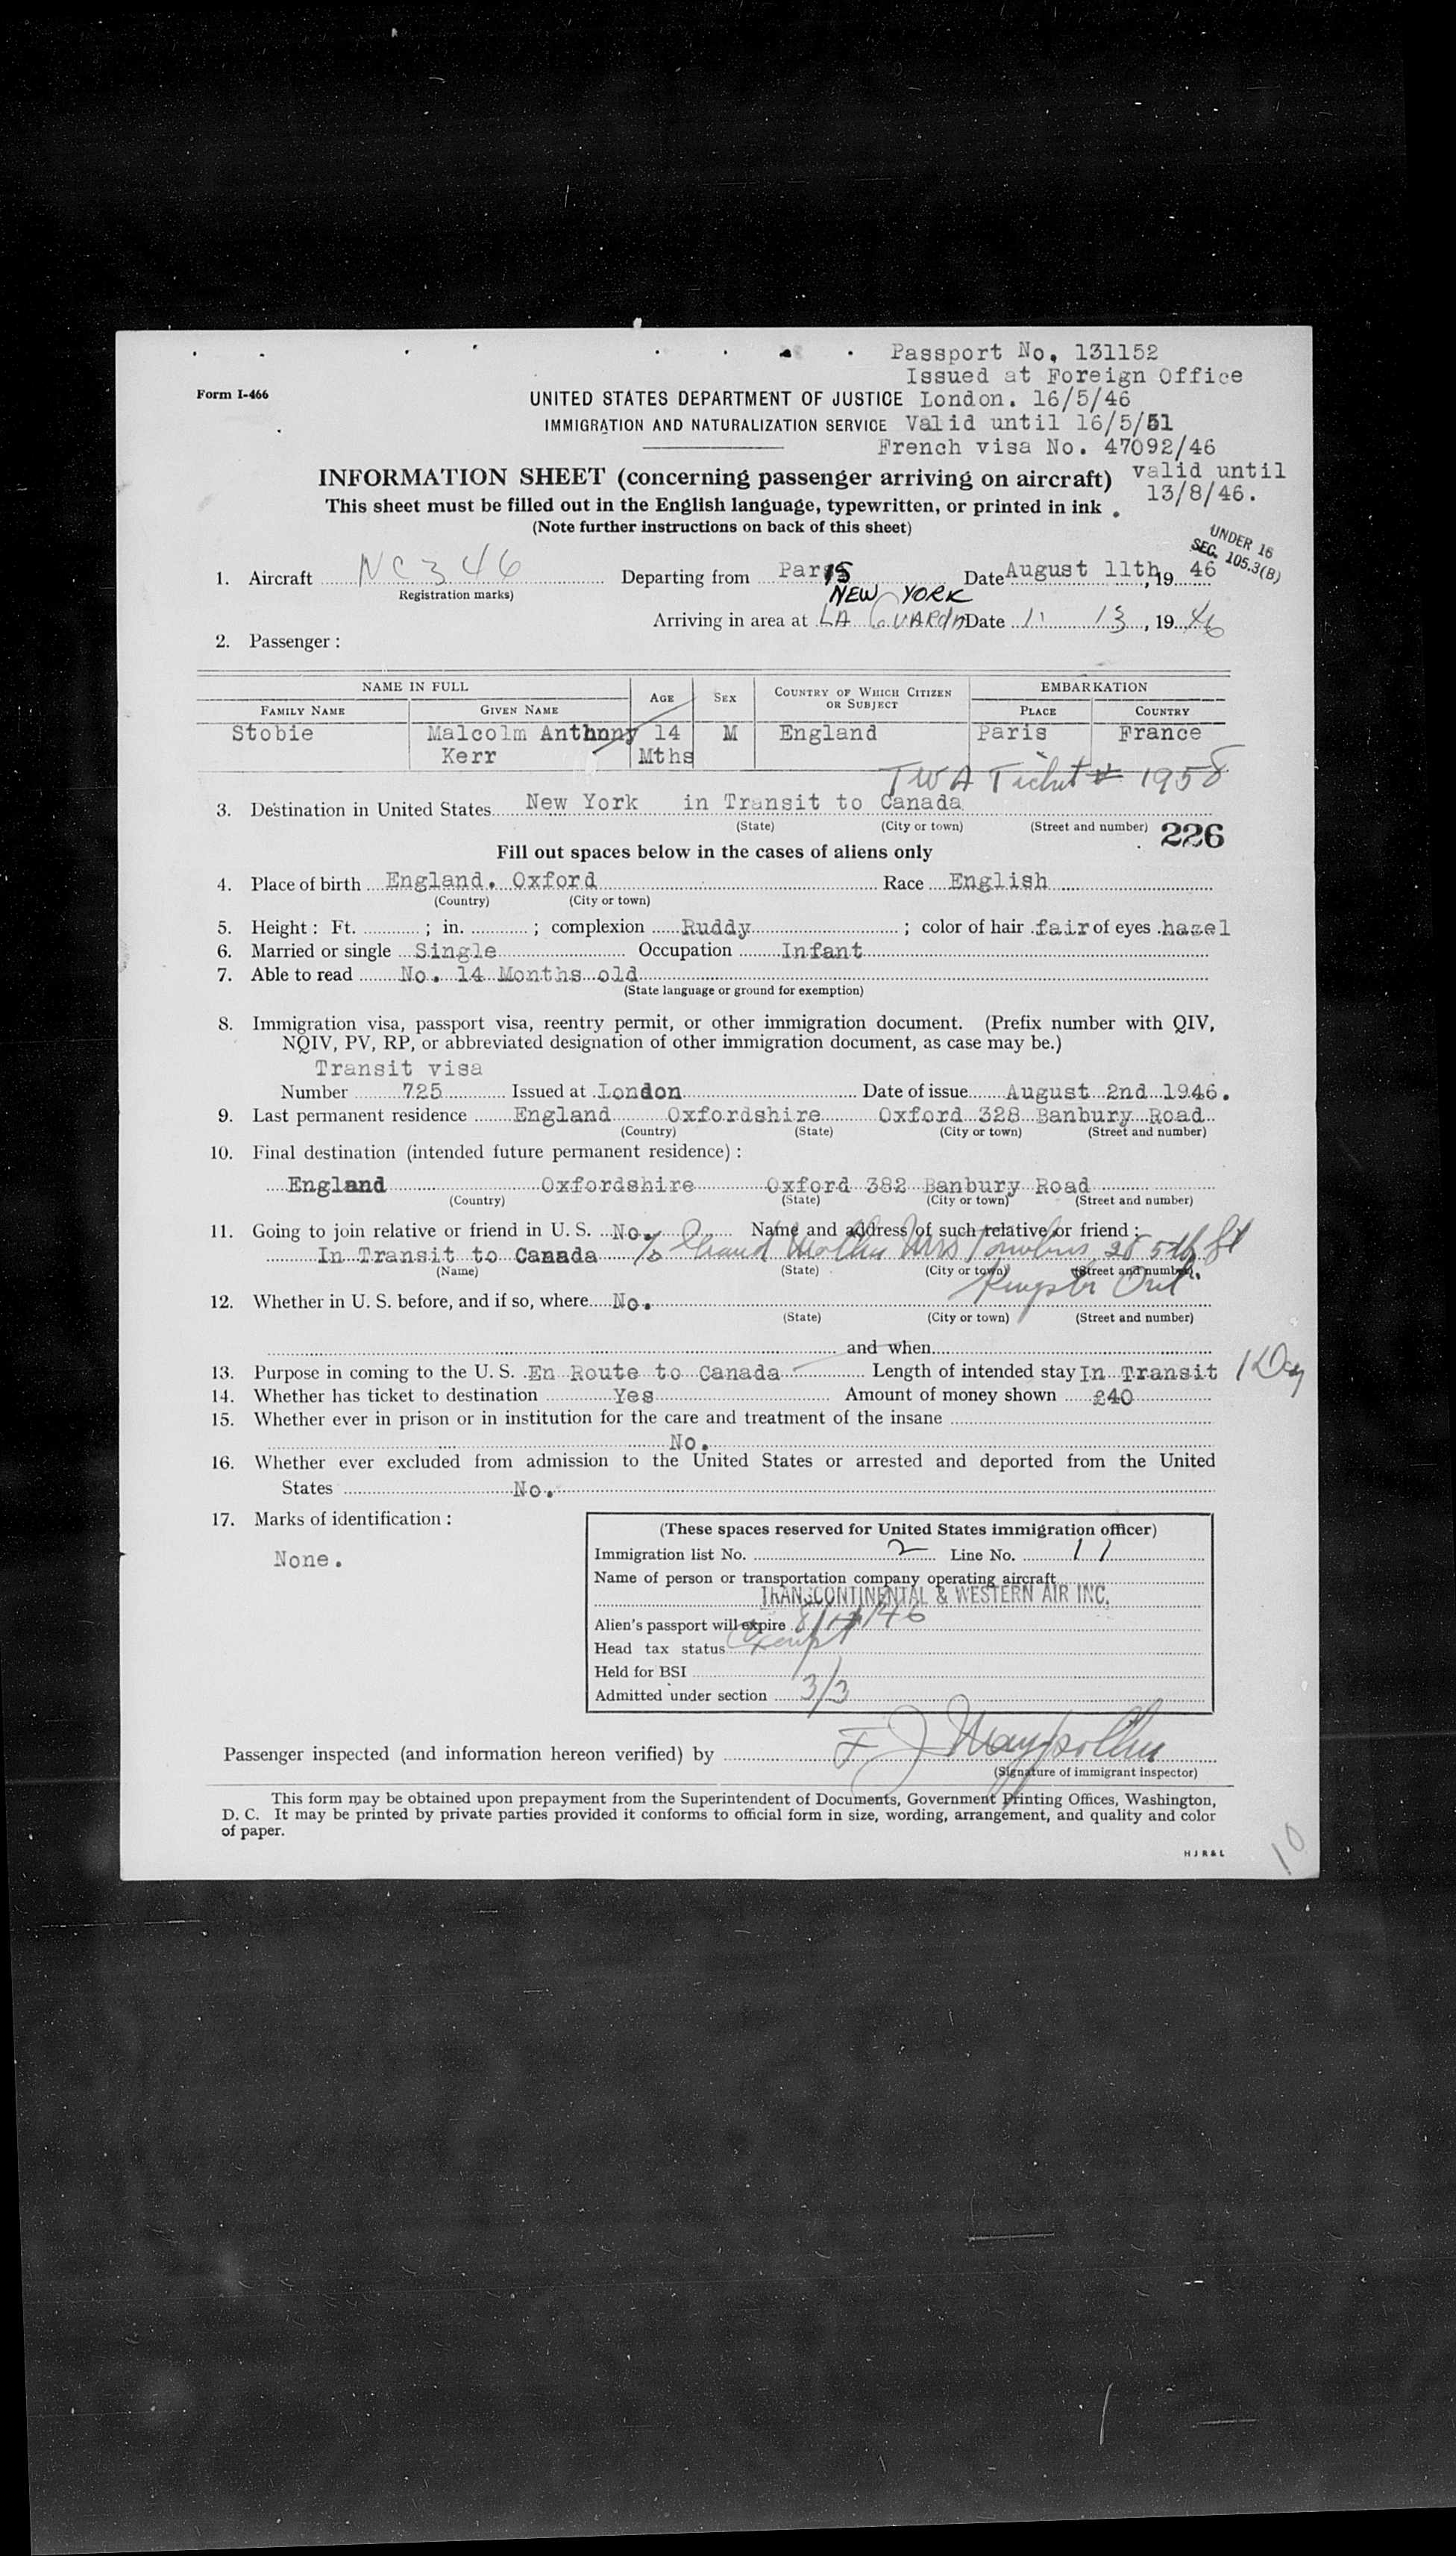 Passport No. 131152
Issued at Foreign Office
Form I-466
UNITED STATES DEPARTMENT OF JUSTICE London. 16/5/46
IMMIGRATION AND NATURALIZATION SERVICE Valid until 16/5/51
French visa No. 47092/46
INFORMATION SHEET (concerning passenger arriving on aircraft) valid until
This sheet must be filled out in the English language, typewritten, or printed in ink. 13/8/46.
(Note further instructions on back of this sheet)
UNDER 16
SEC. 105.3(B)
1. Aircraft NC 346 Departing from Paris Date August 11th, 19 46
(Registration marks)
NEW YORK
Arriving in area at LA GUARDIA Date 13, 19 46
2. Passenger:
NAME IN FULL AGE SEX COUNTRY OF WHICH CITIZEN OR SUBJECT EMBARKATION
FAMILY NAME GIVEN NAME PLACE COUNTRY
Stobie Malcolm Anthony 14 M England Paris France
Kerr Mths
TWA Ticket # 1958
3. Destination in United States New York in Transit to Canada
(State) (City or town) (Street and number) 226
Fill out spaces below in the cases of aliens only
4. Place of birth England. Oxford Race English
(Country) (City or town)
5. Height: Ft. ; in. ; complexion Ruddy ; color of hair fair of eyes hazel
6. Married or single Single Occupation Infant
7. Able to read No. 14 Months old
(State language or ground for exemption)
8. Immigration visa, passport visa, reentry permit, or other immigration document. (Prefix number with QIV,
NQIV, PV, RP, or abbreviated designation of other immigration document, as case may be.)
Transit visa
Number 725 Issued at London Date of issue August 2nd 1946.
9. Last permanent residence England Oxfordshire Oxford 328 Banbury Road
(Country) (State) (City or town) (Street and number)
10. Final destination (intended future permanent residence):
England Oxfordshire Oxford 382 Banbury Road
(Country) (State) (City or town) (Street and number)
11. Going to join relative or friend in U. S. No. Name and address of such relative or friend:
In Transit to Canada Grand Mother Mrs 28 5th St
(Name) (State) (City or town) (Street and number)
Ont.
12. Whether in U. S. before, and if so, where No.
(State) (City or town) (Street and number)
and when
13. Purpose in coming to the U. S. En Route to Canada Length of intended stay In Transit 1 Day
14. Whether has ticket to destination Yes Amount of money shown £40
15. Whether ever in prison or in institution for the care and treatment of the insane
No.
16. Whether ever excluded from admission to the United States or arrested and deported from the United
States No.
17. Marks of identification:
None.
(These spaces reserved for United States immigration officer)
Immigration list No. 2 Line No. 11
Name of person or transportation company operating aircraft
TRANSCONTINENTAL & WESTERN AIR INC.
Alien's passport will expire
Head tax status Exempt
Held for BSI
Admitted under section 3/3
Passenger inspected (and information hereon verified) by F J
(Signature of immigrant inspector)
This form may be obtained upon prepayment from the Superintendent of Documents, Government Printing Offices, Washington,
D. C. It may be printed by private parties provided it conforms to official form in size, wording, arrangement, and quality and color
of paper.
H J R & L
10